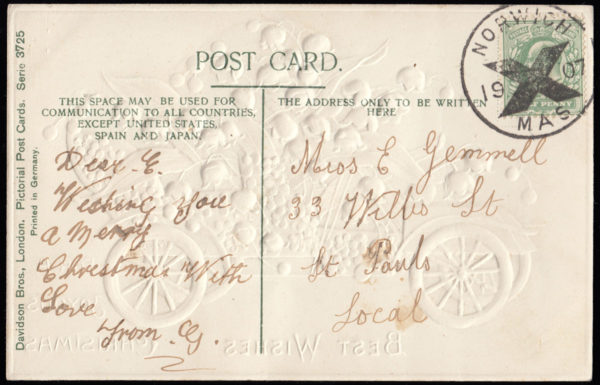 NORWICH
1907
XMAS
POST CARD.
THIS SPACE MAY BE USED FOR
COMMUNICATION TO ALL COUNTRIES,
EXCEPT UNITED STATES,
SPAIN AND JAPAN.
THE ADDRESS ONLY TO BE WRITTEN
HERE
Davidson Bros., London. Pictorial Post Cards. Serie 3725
Printed in Germany.
Dear E.
Wishing You
a Merry
Christmas With
Love
from G.
Miss E Gemmell
33 Willis St
St Pauls
Local
BEST WISHES
CHRISTMAS